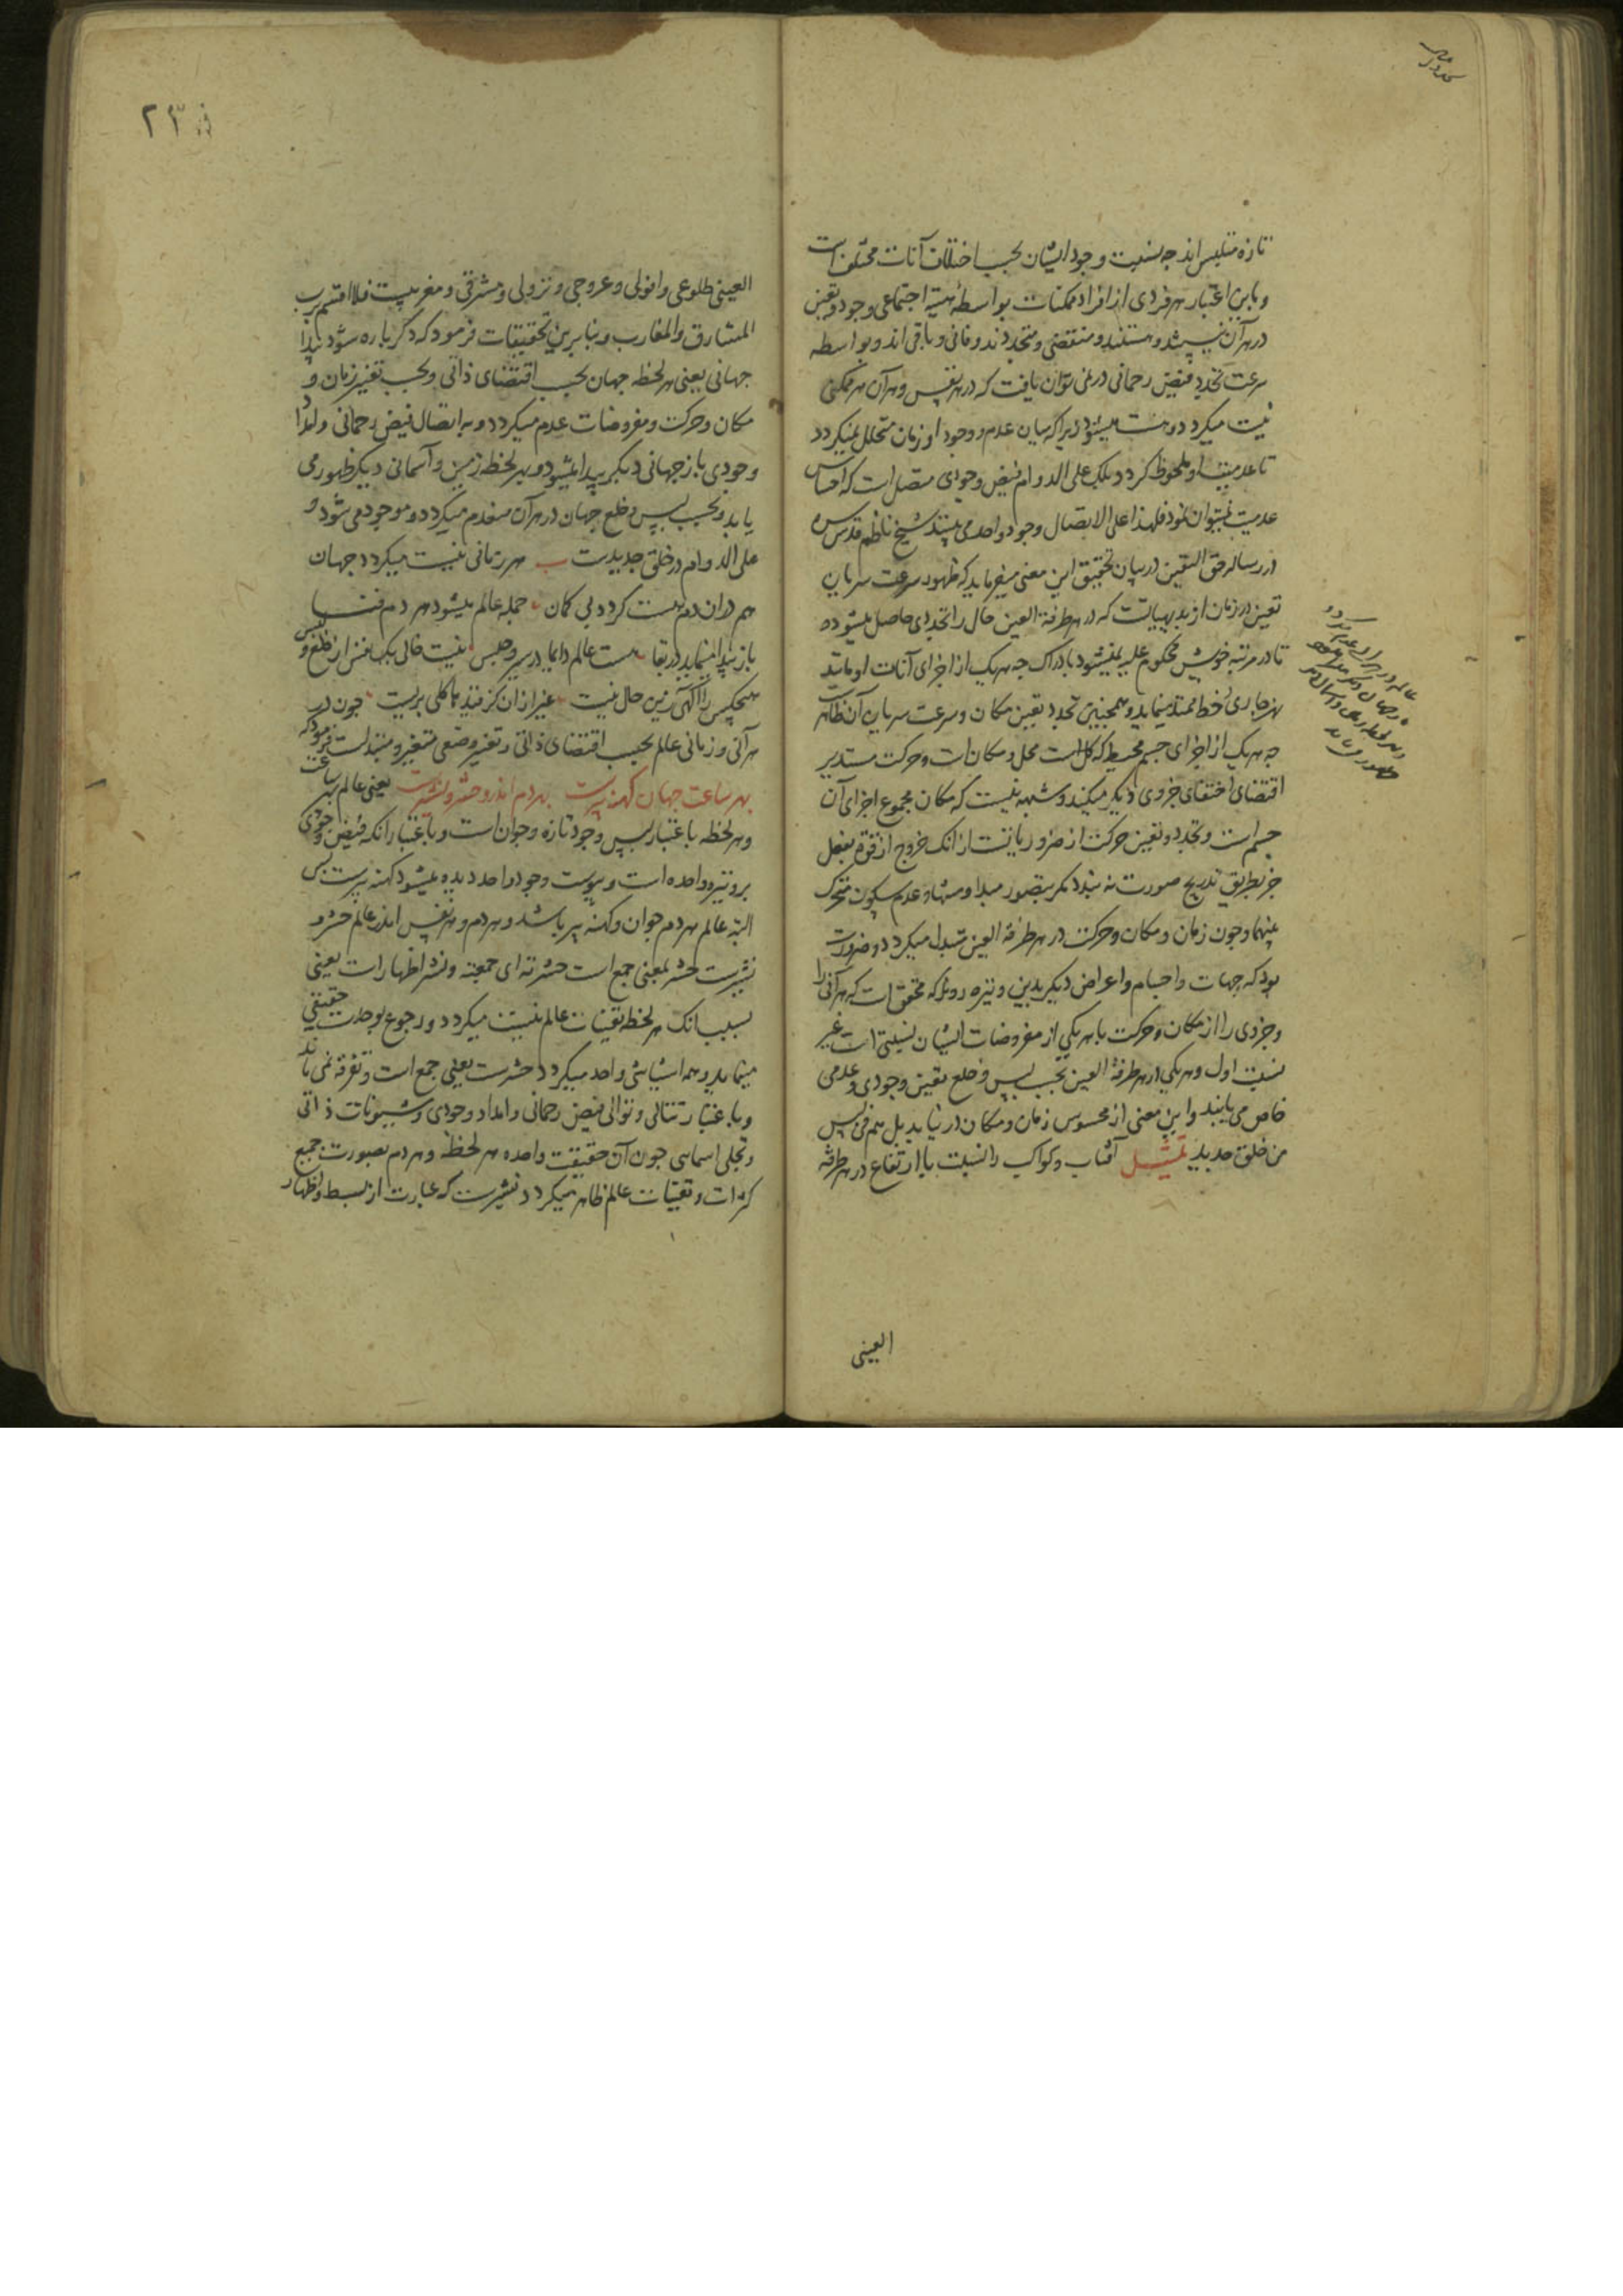 تازه متلبس‌اند چه نسبت وجود ایشان بحسب اختلاف آنات مختلف است
و باین اعتبار هر فردی از افراد ممکنات بواسطهٔ هیئة اجتماعی وجود و تعین
در هر آن نیست شد و هستند و منقضی و متجددند و فانی و باقی‌اند و بواسطه
سرعت تجدد فیض رحمانی در نمی‌توان یافت که در هر نفس و هر آن هر ممکنی
نیست میگردد و هست میشود زیرا که میان عدم و وجود او زمان متخلل نمیگردد
تا عدمیت او ملحوظ گردد بلکه علی الدوام فیض وجودی متصل است که احساس
عدمیت نمیتوان نمود فلهذا علی الاتصال وجود واحد می‌بینند شیخ ناظم قدس سره
در رساله حق الیقین در بیان تحقیق این معنی میفرماید که ظهور سرعت سریان
تعین در زمان از بدیهیاتست که در هر طرفة العین حال را تجددی حاصل میشود و
تا در مرتبه خویش محکوم علیه نمیشود بادراک چه هر یک از اجزای آنات او مانند
نهر جاری خط ممتد مینماید و همچنین تجدد تعین مکان و سرعت سریان آن ظاهرست
چه هر یک از اجزای جسم محیط که کل است محل و مکان‌ات و حرکت مستدیر
اقتضای اختفای جزوی دیگر میکند و شبهه نیست که مکان مجموع اجزای آن
جسم است و تجدد و تعین حرکت از ضروریاتست از آنک خروج از قوه بفعل
جز بطریق تدریج صورت نه‌بندد مگر بتصور مبدا و منتها و عدم سکون متحرک
بینهما و چون زمان و مکان و حرکت در هر طرفة العین متبدل میگردد و ضرورت
بود که جهات و اجسام و اعراض دیگر بدین وتیره روند که محقق است که هر آنی را
و جزوی را از مکان و حرکت با هر یکی از مفروضات ایشان نسبتی است غیر
نسبت اول و هر یکی در هر طرفة العین بحسب لبس و خلع تعین وجودی و عدمی
خاص می‌یابند و این معنی از محسوس زمان و مکان در نیابد بل هم فی لبس
من خلق جدید تمثیل آفتاب و کواکب را نسبت با ارتفاع در هر طرفة
العینی
العینی طلوعی و افولی و عروجی و نزولی و مشرقی و مغربیست فلا اقسم برب
المشارق والمغارب و بنابرین تحقیقات فرمود که دگرباره شود پیدا
جهانی یعنی هر لحظه جهان بحسب اقتضای ذاتی و بحسب تغیر زمان و
مکان و حرکت و مفروضات عدم میگردد و به اتصال فیض رحمانی و امداد
وجودی باز جهانی دیگر پیدا میشود و بهر لحظه زمین و آسمانی دیگر ظهور می
یابد و بحسب لبس و خلع جهان در هر آن منعدم میگردد و موجود می شود و
علی الدوام در خلق جدیدست هر زمانی نیست میگردد جهان
هم در ان دم هست گردد بی گمان جمله عالم میشود هر دم فنا
باز پیدا مینماید در بقا هست عالم دایما در سیر و حبس نیست خالی یکنفس از خلع و لبس
هیچکس را آگهی زین حال نیست غیر از ان کز قید ما کلی بریست چون در
هر آنی و زمانی عالم بحسب اقتضای ذاتی و تغیر وضعی متغیر و متبدلست فرمود که
بهر ساعت جهان کهنه پیرست بهر دم اندرو حشر و نشیرست یعنی عالم بهر ساعت
و هر لحظه باعتبار لبس وجود تازه و جوان است و باعتبار آنکه فیض وجودی
بر وتیره واحده است و پیوست وجود واحد دیده میشود کهنه پیرست پس
البته عالم هر دم جوان و کهنه پیر باشد و هر دم و هر نفس اندر عالم حشر و
نشیرست حشر بمعنی جمع است حشرته ای جمعته و نشر اظهار است یعنی
بسبب آنک هر لحظه تعینات عالم نیست میگردد و رجوع بوحدت حقیقی
مینماید و همه اشیا شی واحد میگردد حشرست یعنی جمع است و تفرقه نمی ماند
و باعتبار تتالی و توالی فیض رحمانی و امداد وجودی و شیونات ذاتی
و تجلی اسمایی چون آن حقیقت واحده هر لحظه و هر دم بصورت جمیع
کثرات و تعینات عالم ظاهر میگردد نشیرست که عبارت از بسط و اظهار
۲۳